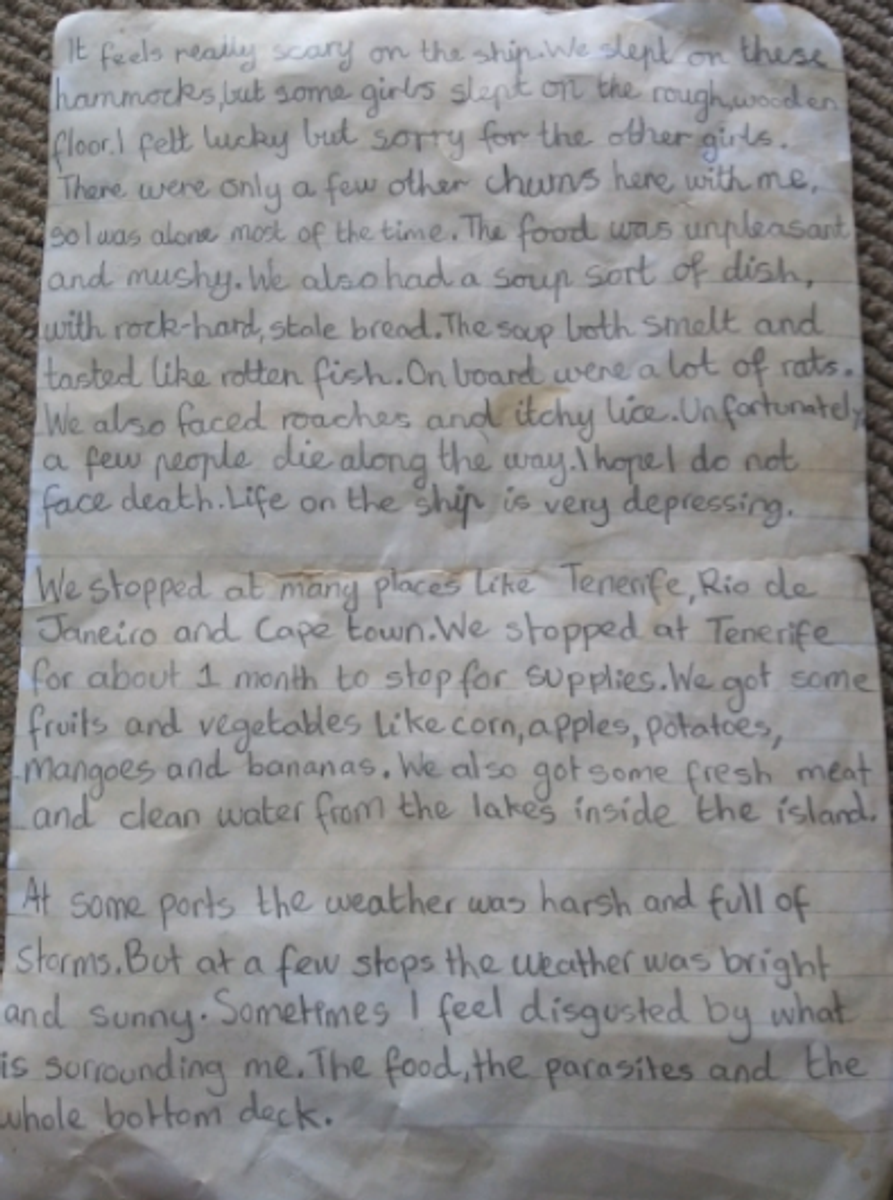 It feels really scary on the ship.We slept on these
hammocks,but some girls slept on the rough,wooden
floor.I felt lucky but sorry for the other girls.
There were only a few other chums here with me,
so I was alone most of the time.The food was unpleasant
and mushy.We also had a soup sort of dish,
with rock-hard,stale bread.The soup both smelt and
tasted like rotten fish.On board were a lot of rats.
We also faced roaches and itchy lice.Unfortunately
a few people die along the way.I hope I do not
face death.Life on the ship is very depressing.
We stopped at many places like Tenerife,Rio de
Janeiro and Cape town.We stopped at Tenerife
for about 1 month to stop for supplies.We got some
fruits and vegetables like corn,apples,potatoes,
Mangoes and bananas.We also got some fresh meat
and clean water from the lakes inside the island.
At some ports the weather was harsh and full of
Storms.But at a few stops the weather was bright
and sunny.Sometimes I feel disgusted by what
is surrounding me.The food,the parasites and the
whole bottom deck.